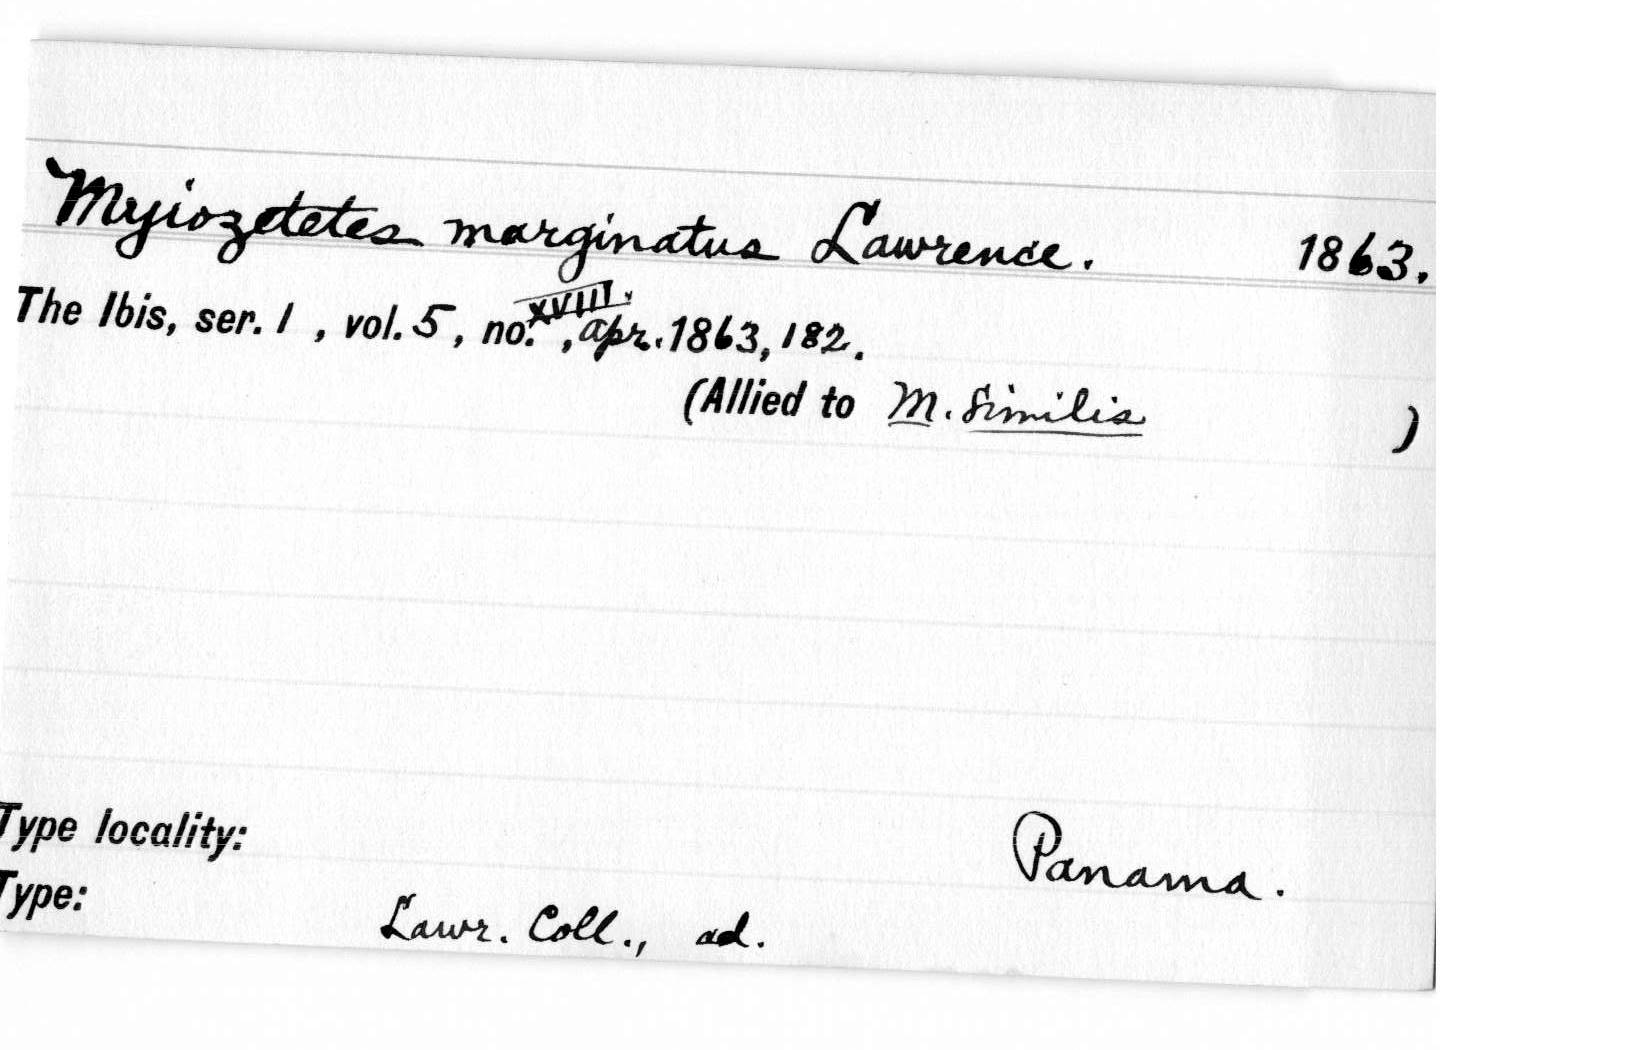 Myiozetetes marginatus Lawrence. 1863.
The Ibis, ser. 1 , vol. 5 , no. XVIII. , Apr. 1863, 182.
(Allied to M. similis )
Type locality: Panama.
Type: Lawr. Coll., ad.